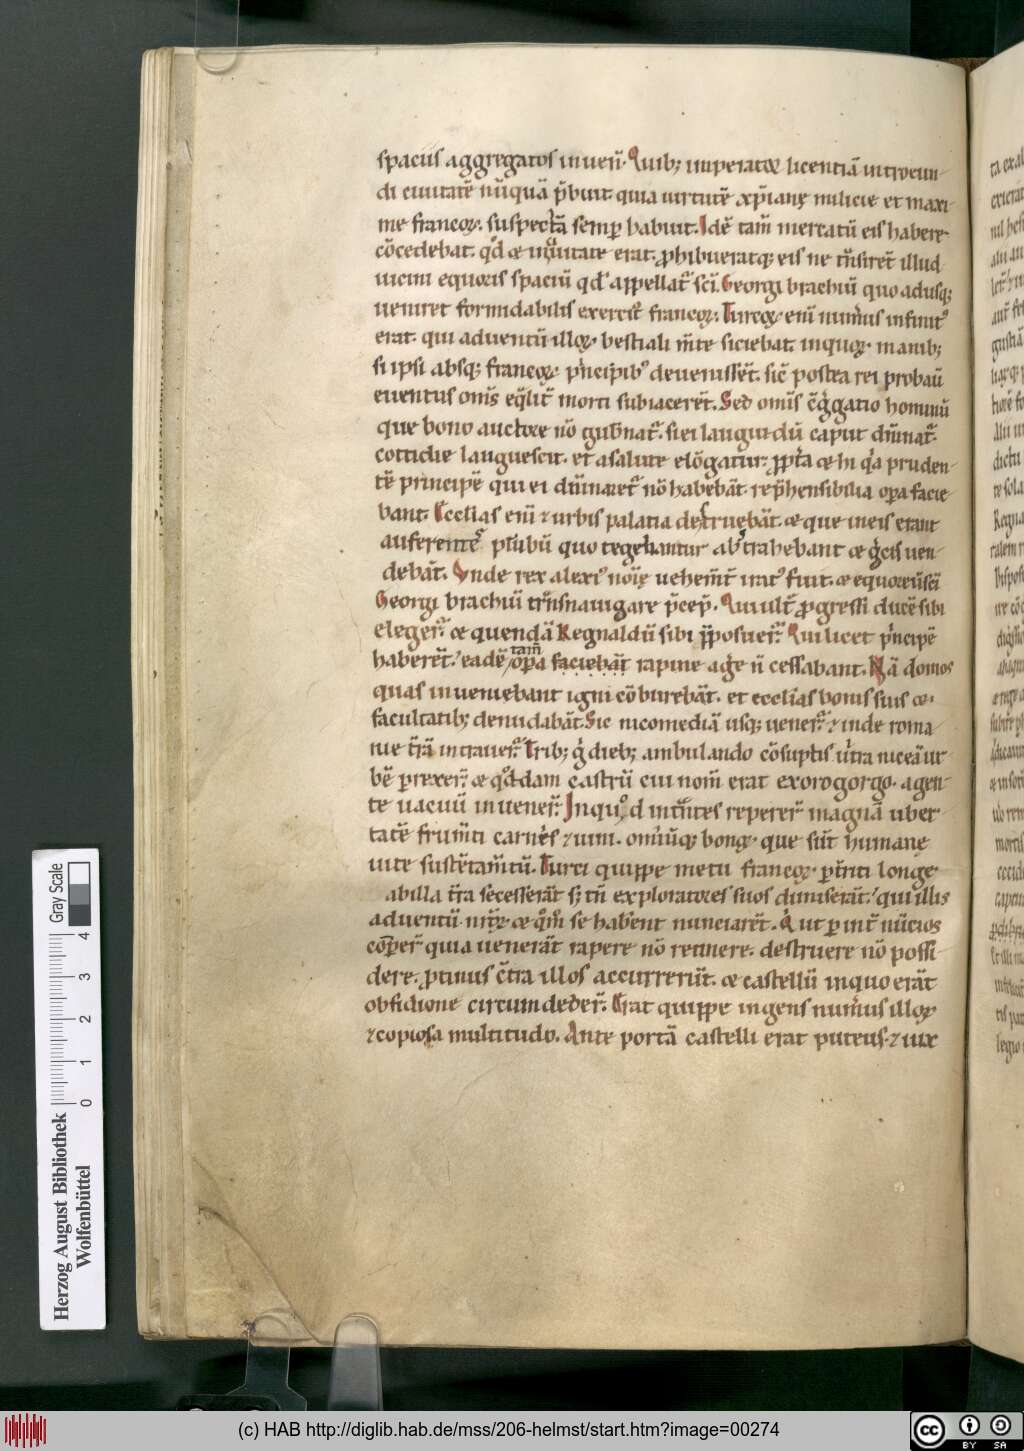 spaciis aggregatos inuen̄. Quib; imperator licentiā introeun-
di ciuitatē nūquā p̄buit. quia uirtutē xp̄ianę milicie et maxi-
me francoꝝ. suspectā semp̲ habuit. Idē tam̄ mercatū eis habere
cōcedebat. qd̄ ⁊ in ciuitate erat. ꝓhibueratq; eis ne tn̄siret̄ illud
uicini equoris spaciū qd̄ appellat̄ sci̅. Georgi brachiū quo adusq;
ueniret formidabilis exercit᷒ francoꝝ. Turcoꝝ eni̅ num̄us infinit᷒
erat. qui aduentū illoꝝ bestiali m̄te siciebat. in quoꝝ manib;
si ipsi absq; francoꝝ p̄ncipib᷒ deuenissēt. sic̄ postea rei probauī
euentus om̄s eq̄lit̄ morti subiacerēt. Sed om̄is c̄g̅gatio hominū
que bono auctore nō gub̄nat̄. si ei languidū caput dn̄inat̄.
cottidie languescit. et a salute elōgatur. ꝓpt̄a ⁊ hi q̄a pruden-
tē principē qui ei dn̄inaret̄ nō habebāt. rep̄hensibilia op̲a facie-
bant. Ecclias eni̅ ⁊ urbis palatia destruebāt. ⁊ que in eis erant
auferentes plūbū quo tegebantur abstrahebant ⁊ g̅cis uen-
debāt. Vnde rex alexi᷒ noi̅ę uehem̄t̄ irat᷒ fuit. ⁊ equoreū sci̅
Georgi brachiū tn̄snauigare p̄cep̄. Qui ult̄ ꝓgressi ducē sibi
eleger̄. ⁊ quendā Regnaldū sibi p̄posuer̄. Qui licet p̄ncipē
haberēt. eadē tam̄ op̲a faciebāt rapine ag̅e n̄ cessabant. Nā domos
quas inueniebant igni cōburebāt. et ecclias bonis suis ⁊
facultatib; denudabāt. Sic nicomediā usq; uener̄. ⁊ inde roma-
nie t̄rā intrauer̄. Trib; g̅ dieb; ambulando cōsūptis ult̄a niceā ur-
bē p̲rexer̄. ⁊ qddam castrū cui nom̄ erat exorogorgo. agen-
te uacuū inuener̄. In quod int̄ntes reperer̄ magnā uber-
tatē frum̄ti carnis ⁊ uini. om̄iūq; bonoꝝ que sūt humane
uite sustētam̄tū. Turci quippe metu francoꝝ p̲t̄riti longe
ab illa t̄ra secesserāt s; tn̄ exploratores suos dimiserāt. qui illis
aduentū nr̄oꝝ ⁊ qm̄ se hab̄ent nunciarēt. Q̄ ut p̲ int̄ nūcios
cōp̲er̄ quia uenerāt rapere nō retinere. destruere nō possi-
dere. ꝓtinus c̄tra illos accurrerūt. ⁊ castellū in quo erāt
obsidione circumdeder̄. Erat quippe ingens num̄us illoꝝ
⁊ copiosa multitudo. Ante portā castelli erat puteus. ⁊ iux
Herzog August Bibliothek
Wolfenbüttel
0 1 2 3 4
Gray Scale
(c) HAB http://diglib.hab.de/mss/206-helmst/start.htm?image=00274
cc BY SA